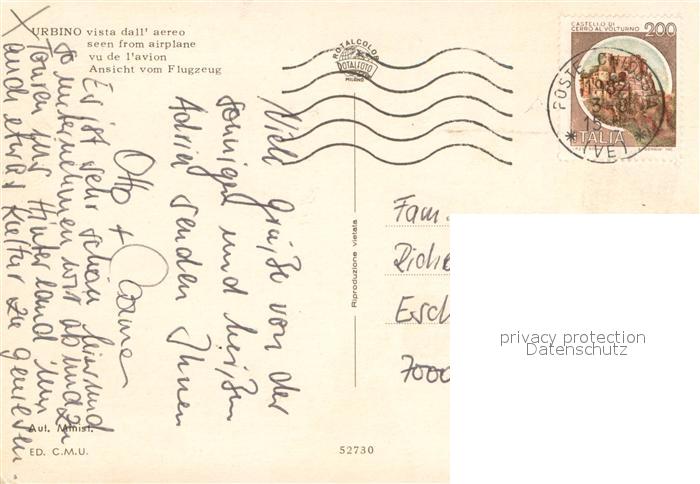 URBINO vista dall' aereo
seen from airplane
vu de l'avion
Ansicht vom Flugzeug
ROTALCOLOR
ROTALFOTO
MILANO
CASTELLO DI
CERRO AL VOLTURNO
200
ITALIA
POSTE
1982
15
(VE)
Viele Grüße von der
sonnigen und heißen
Adria senden Ihnen
Otto +
X
Es ist sehr schön hier und
so unternehmen wir ab und zu
Touren ins Hinterland um
auch etwas Kultur zu genießen
Riproduzione vietata
Fam.
Esch
7000
privacy protection
Datenschutz
Aut. Minist.
ED. C.M.U.
52730